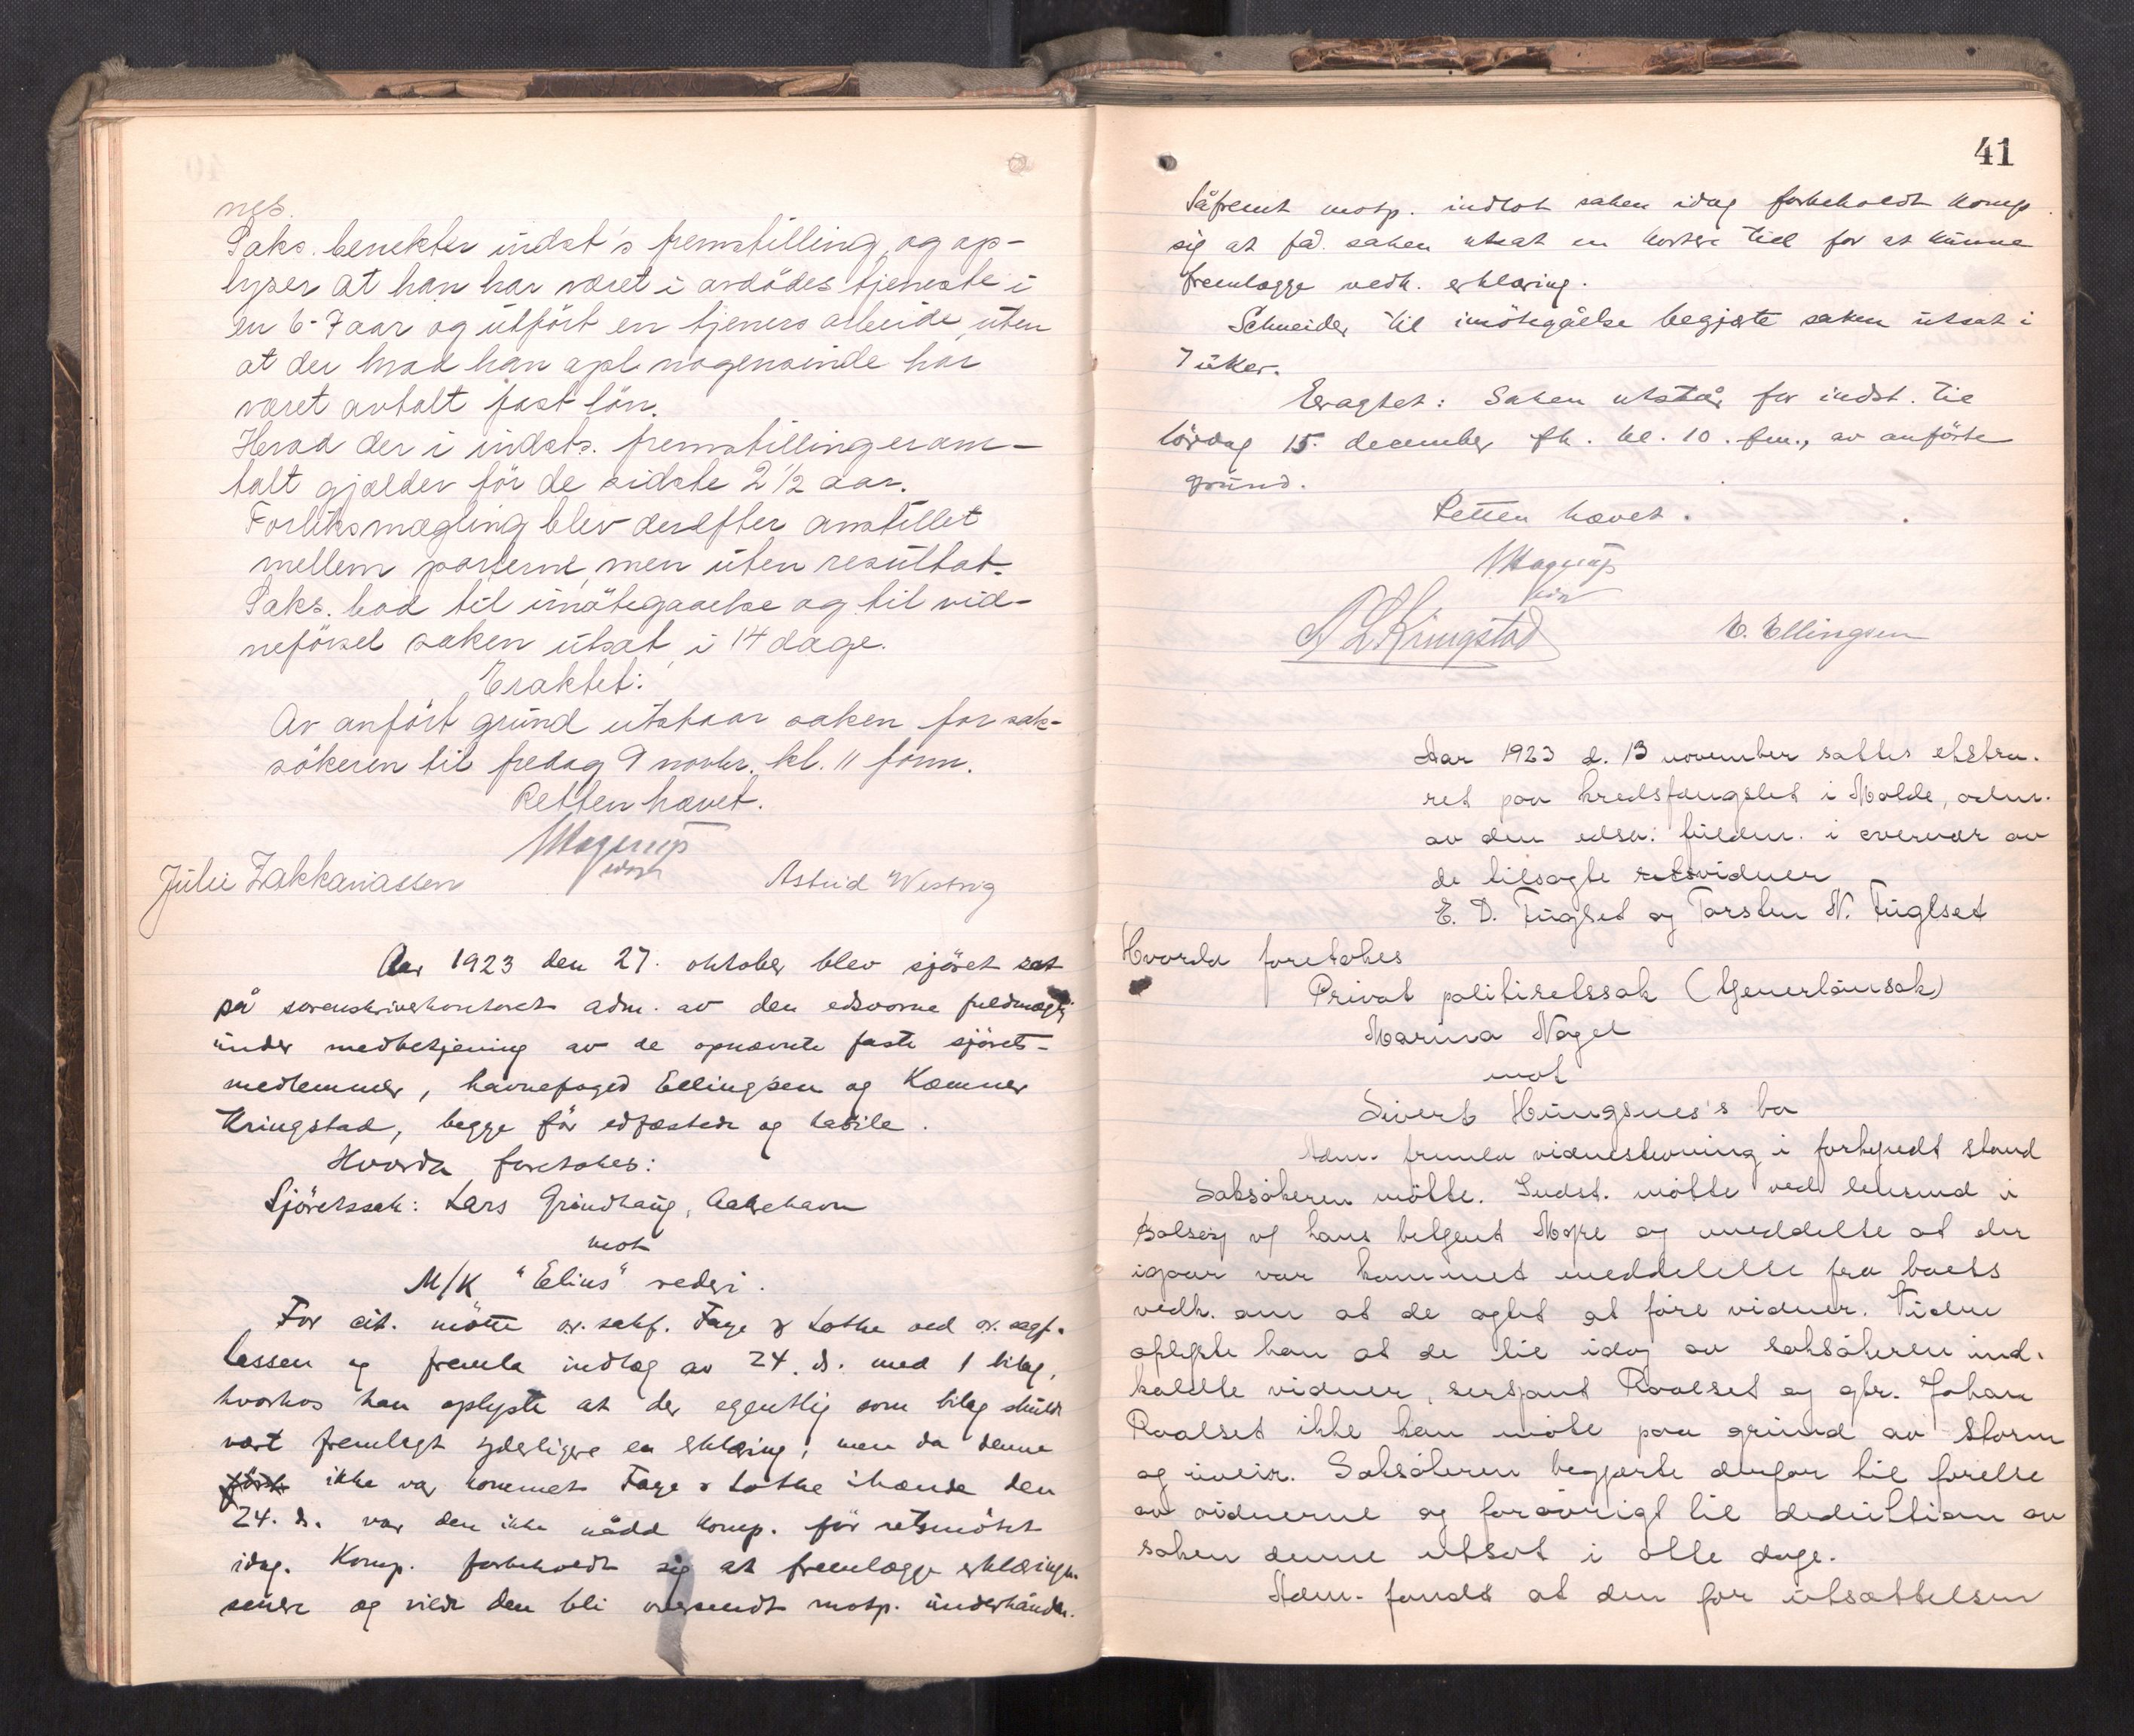 nes.
Saks. benekter indst's fremstilling, og op-
lyser at han har været i avdødes tjeneste i
en 6-7 aar og utført en tjeners arbeide, uten
at der hvad han opl. nogensinde har
været avtalt fast løn.
Hvad der i indsts. fremstilling er om-
talt gjælder før de sidste 2 1/2 aar.
Forliksmægling blev derefter anstillet
mellem parterne, men uten resultat.
Saks. bad til imøtegaaelse og til vid-
neførsel saken utsat i 14 dage.
Eraktet:
Av anført grund utstaar saken for sak-
søkeren til fredag 9 novbr. kl. 11 form.
Retten hævet.
Julie Zakkariassen Astrid Westvig
Aar 1923 den 27. oktober blev sjøret sat
på sorenskriverkontoret adm. av den edsvorne fuldmægtig
under medbetjening av de opnævnte faste sjørets-
medlemmer, havnefoged Ellingsen og Kæmner
Kringstad, begge før edfæstede og habile.
Hvorda foretokes:
Sjøretssak: Lars Grindhaug, Aakrehavn
mot
M/K "Elius" rederi.
For cit. møtte o.r. sakf. Faye & Lothe ved o.r. sagf.
Lassen og fremla indlæg av 24. ds. med 1 bilag,
hvorhos han oplyste at der egentlig som bilag skulde
vært fremlagt yderligere en erklæring; men da denne
først ikke var kommet Faye & Lothe ihænde den
24. ds. var den ikke nådd komp. før retsmøtet
idag. Komp. forbeholdt sig at fremlægge erklæringen
senere og vilde den bli oversendt motp. underhånden.
41
Såfremt motp. indlot saken idag forbeholdt komp.
sig at få saken utsat en kortere tid for at kunne
fremlægge vedk. erklæring.
Schneider til imøtegåelse begjærte saken utsat i
7 uker.
Eragtet: Saken utstår for indst. til
lørdag 15. december fk. kl. 10. fm., av anførte
grund.
Retten hævet.
A L Kringstad E. Ellingsen
Aar 1923 d. 13 november sattes ekstra-
ret paa kredsfængslet i Molde, adm.
av den edsv: fuldm. i overvær av
de tilsagte retsvidner
E. D. Fuglset og Torsten N. Fuglset
Hvorda foretokes
Privat politiretssak (tjenerlønsak)
Marina Nagel
mot
Sivert Hungsnes's bo
Adm. fremla vidnestevning i forkyndt stand
Saksøkeren møtte. Indst. møtte ved lensmd i
Bolsøy v/ hans betjent Mope og meddelte at der
igaar var kommet meddelelse fra boets
vedk. om at de agtet at føre vidner. Videre
oplyste han at de til idag av saksøkeren ind-
kaldte vidner, sersjant Roalset og gbr. Johan
Roalset ikke kan møte paa grund av storm
og uveir. Saksøkeren begjærte derfor til førelse
av vidnerne og forøvrigt til deduktion av
saken denne utsat i otte dage.
Adm. fandt at den for utsættelsen